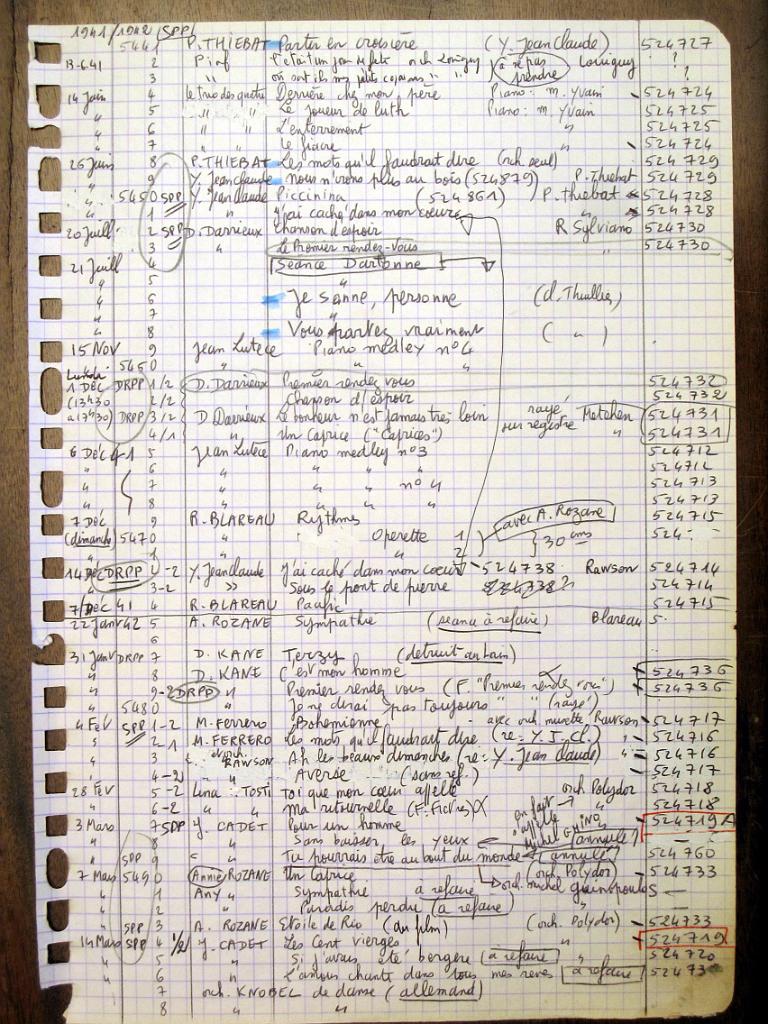 1941/1942 SPP
5441 P. THIEBAT Partir en croisière (Y. Jean Claude) 524727
13-6.41 2 Piaf C'était un jour de fête orch Louiguy (à ne pas prendre) Louiguy ?
3 " où sont ils mes petits copains " " " ?
14 Juin 4 le trio des quatre Derrière chez mon père Piano: m. Yvain 524724
" 5 " " Le joueur de luth Piano: m. Yvain 524725
" 6 " " L'enterrement " 524725
" 7 " " le fiacre " 524724
26 Juin 8 P. THIEBAT Les mots qu'il faudrait dire (orch seul) 524729
" 9 Y. Jean claude Nous n'irons plus au bois (524879) P. Thiebat 524729
" 5450 SPP Y. Jean claude Piccinina (524861) P. Thiebat 524728
" 1 " J'ai caché dans mon coeur " 524728
20 Juill 2 SPP D. Darrieux Chanson d'espoir R Sylviano 524730
3 " Le Premier rendez-vous " 524730
21 Juill 4 Seance Dartonne
" 5 "
" 6 Je sonne, personne (d. Thuillier)
" 7 "
" 8 Vous partez vraiment ( " )
15 NOV 9 Jean Lutèce Piano medley n°4
5460 " "
1 DEC DRPP 1/2 D. Darrieux Premier rendez vous 524732
(13h30 2/2 " Chanson d'espoir 524732
à 17h30) DRPP 3/2 D Darrieux Le bonheur n'est jamais très loin rayé sur registre Metehen 524731
4/1 " Un Caprice ("Caprices") " 524731
6 Déc 41 5 Jean Lutèce Piano medley n°3 524712
" 6 " " " " 524712
" 7 " " " n°4 524713
" 8 " " " " 524713
7 Déc 9 R. BLAREAU Rythmes avec A. Rozane 524715
(dimanche) 5470 " Operette 1 } 30 cms 524-
" 1 " " 2
14 Déc DRPP 2-2 Y. Jean claude J'ai caché dans mon coeur 524738 Rawson 524714
3-2 " Sous le pont de pierre 524738? 524714
7/Déc 41 4 R. BLAREAU Pacific 524715
22 Janv 42 5 A. ROZANE Sympathie (seance à refaire) Blareau 5-
" 6
31 Janv DRPP 7 D. KANE Terzy (detruit au bain)
" 8 D. KANE C'est mon homme 524736
" 9-2 DRPP " Premier rendez vous (F. "Premier rendez-vous") 524736
" 5480 " Je ne dirai pas toujours " " (rayé)
4 Fév SPP 1-2 M. Ferrero Bohemienne - avec orch musette Rawson 524717
" 2-1 M. FERRERO Les mots qu'il faudrait dire (re: Y. J. Cl.) 524716
" 3 & orch. RAWSON Ah les beaux dimanches (re: Y. Jean Claude) " 524716
" 4-2 " Averse (sans ref.) 524717
28 Fév 5-2 Lina TOSTI toi que mon coeur appelle orch. Polydor 524718
" 6-2 " Ma ritournelle (F: Fictives) " 524718
3 Mars 7 SPP Y. CADET Pour un homme en fait s'appelle Michel GUINO 524719A
" 8 " Sans baisser les yeux (annulé)
" SPP 9 " Tu pourrais etre au bout du monde (annulé) 524760
7 Mars 5490 Annie ROZANE Un Caprice (orch. Polydor) 524733
" 1 Any " Sympathie a refaire orch. michel guinopoulos —
" 2 " Paradis perdu (a refaire) —
" SPP 3 A. ROZANE Etoile de Rio (du film) (orch. Polydor) 524733
14 Mars SPP 4 1/2 Y. CADET Les Cent vierges " 524719
" 5 " Si j'avais été bergère (a refaire) " 524720
" 6 " L'amour chante dans tous mes reves (a refaire) 52473
7 orch. KNOBEL de danse (allemand)
8 " "